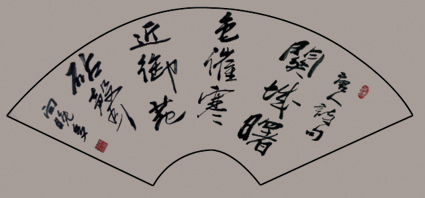 唐人詩句
關城曙
色催寒
近御苑
砧聲
向晚多